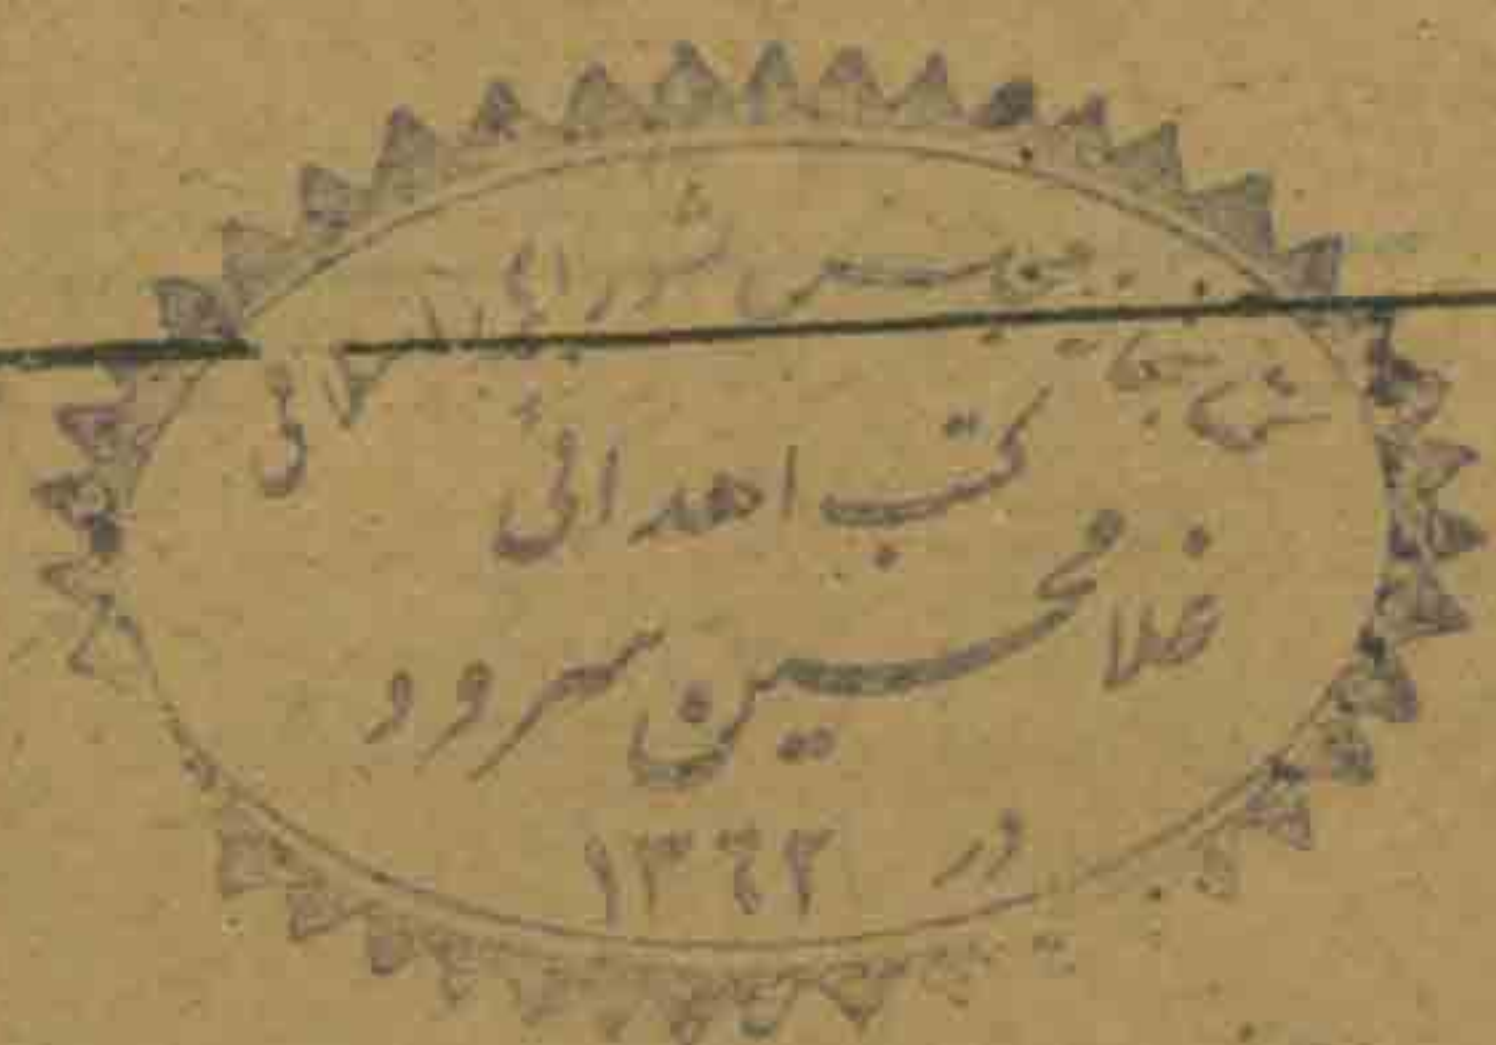 کتابخانه مجلس شورای ملی
کتب اهدائی
غلامحسین سرود
در ۱۳۴۲